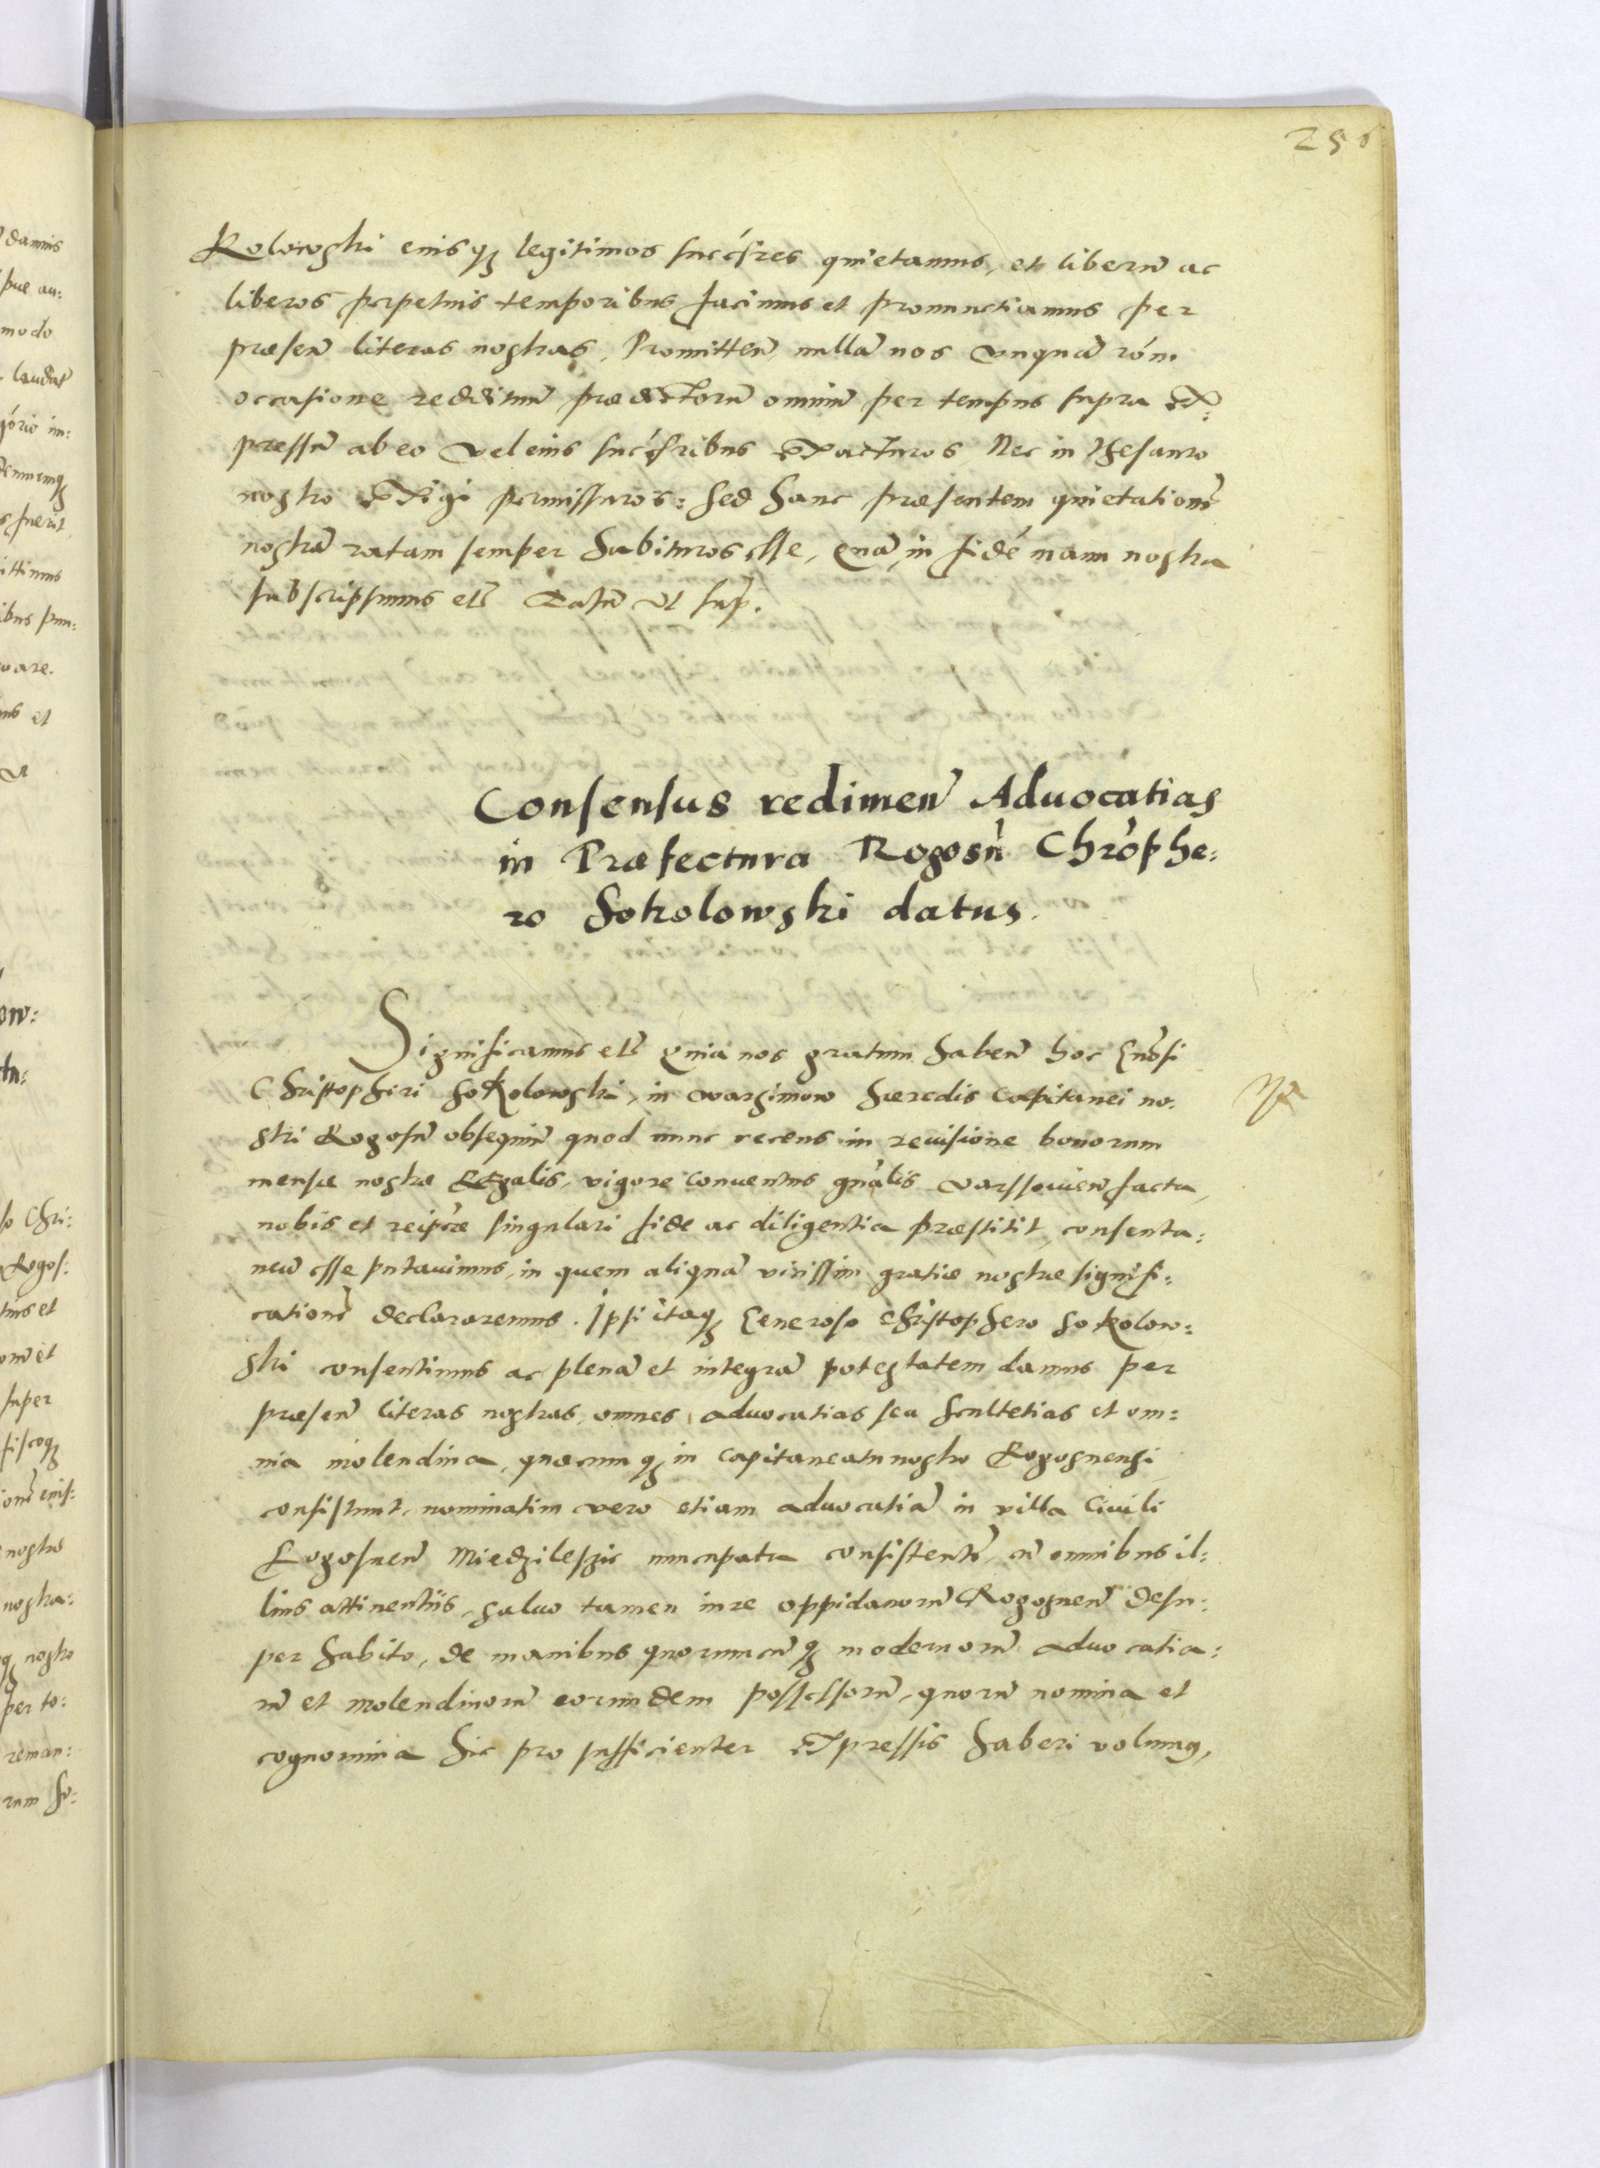 256
Kolowski eiusq3 legitimos succ̃sres quietamus, et liberũ ac
liberos perpetuis temporibus facimus et pronunctiamus per
præsen̄ literas nostras. Promitten̄ nullã nos unquã rõni
occasione reddituũ prædictorũ omniũ per tempus supra ex:
pressũ ab eo vel eius succ̃sribus exacturos Nec in Thesauro
nostro exigi permissuros: sed hanc præsentem quietationẽ
nostrã ratam semper habituros esse, Quã in fidẽ manu nostra
subscripsimus etc̃ Datũ Ut sup̃.
Consensus redimen̄ Aduocatias
in Præfectura Rogosñ Chrõphe:
ro Sokolowski datus.
Significamus etc̃ Quia nos gratum haben̄ hoc Gñosi
Christopheri Sokolowski, in warzimow hæredis Capitanei no:
stri Rogosn̄ obsequiũ quod nunc recens in reuisione bonorum
mensæ nostræ Regalis, vigore Conuentus gñalis Varssouien̄ facta,
nobis et reipc̃æ singulari fide ac diligentia præstitit, consenta:
neũ esse putauimus, in quem aliquã vicissim gratiæ nostræ signifi:
cationẽ declararemus. Ipsi itaq3 Generoso Christophero Sokolow:
ski consentimus ac plenã et integrã potestatem damus per
præsen̄ literas nostras, omnes aduocatias seu scultetias et om:
nia molendina, quæcumq3 in Capitaneatu nostro Rogosnensi
consistunt, nominatim vero etiam aduocatiã in villa Ciuili
Rogosnen̄ Miedzileszie nuncupata consistentẽ, cũ omnibus il:
lius attinentiis, saluo tamen iure oppidanorũ Rogosnen̄ desu:
per habito, de manibus quorumcũq3 modernorũ aduocatia:
rũ et molendinorũ eorundem possessorũ, quorũ nomina et
cognomina hic pro sufficienter expressis haberi volumus,